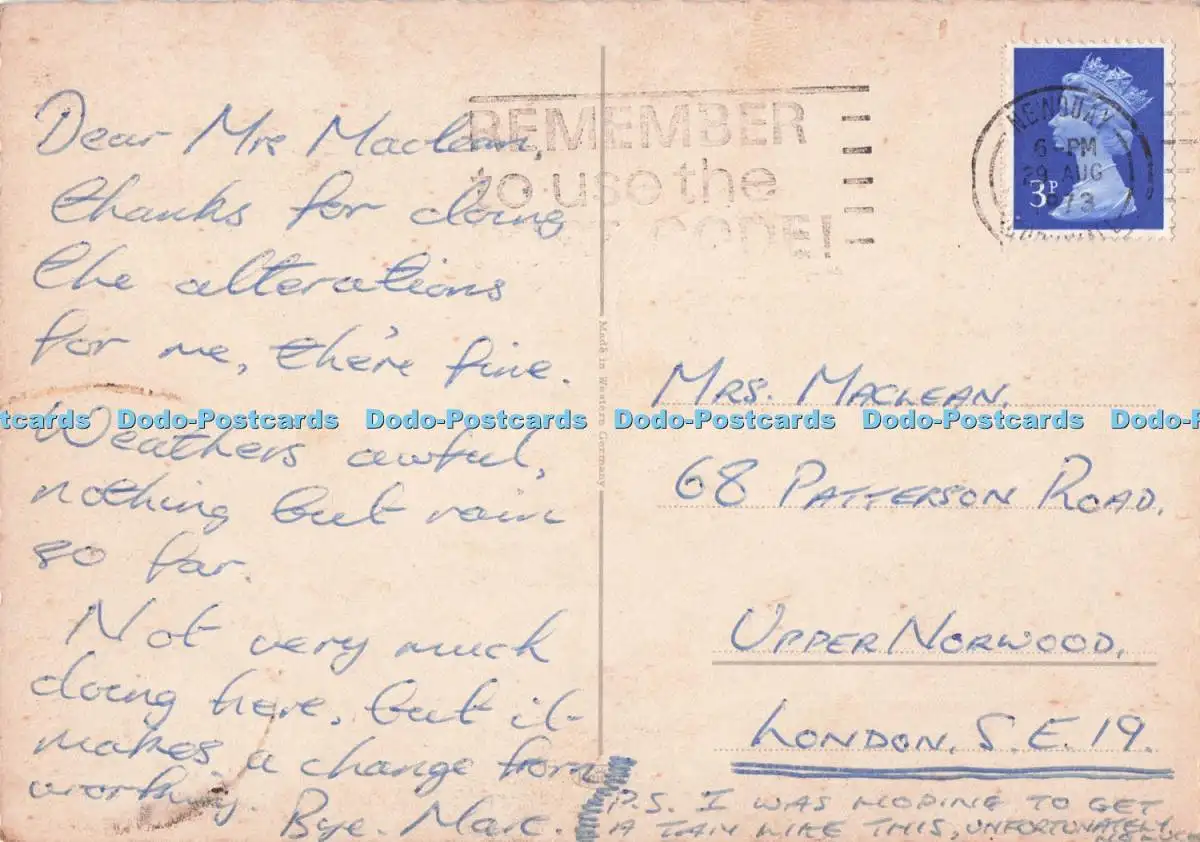 Dear Mrs Maclean,
thanks for doing
the alterations
for me, the're fine.
Weathers awful,
nothing but rain
so far.
Not very much
doing here, but it
makes a change from
working.
Bye. Marc.
REMEMBER
to use the
CODE!
NEWQUAY
6 PM
29 AUG
1973
3P
Made in Western Germany
MRS. MACLEAN.
68 PATTERSON ROAD.
UPPER NORWOOD.
LONDON. S.E. 19.
P.S. I WAS HOPING TO GET
A TAN LIKE THIS, UNFORTUNATELY
NO LUCK
Dodo-Postcards Dodo-Postcards Dodo-Postcards Dodo-Postcards